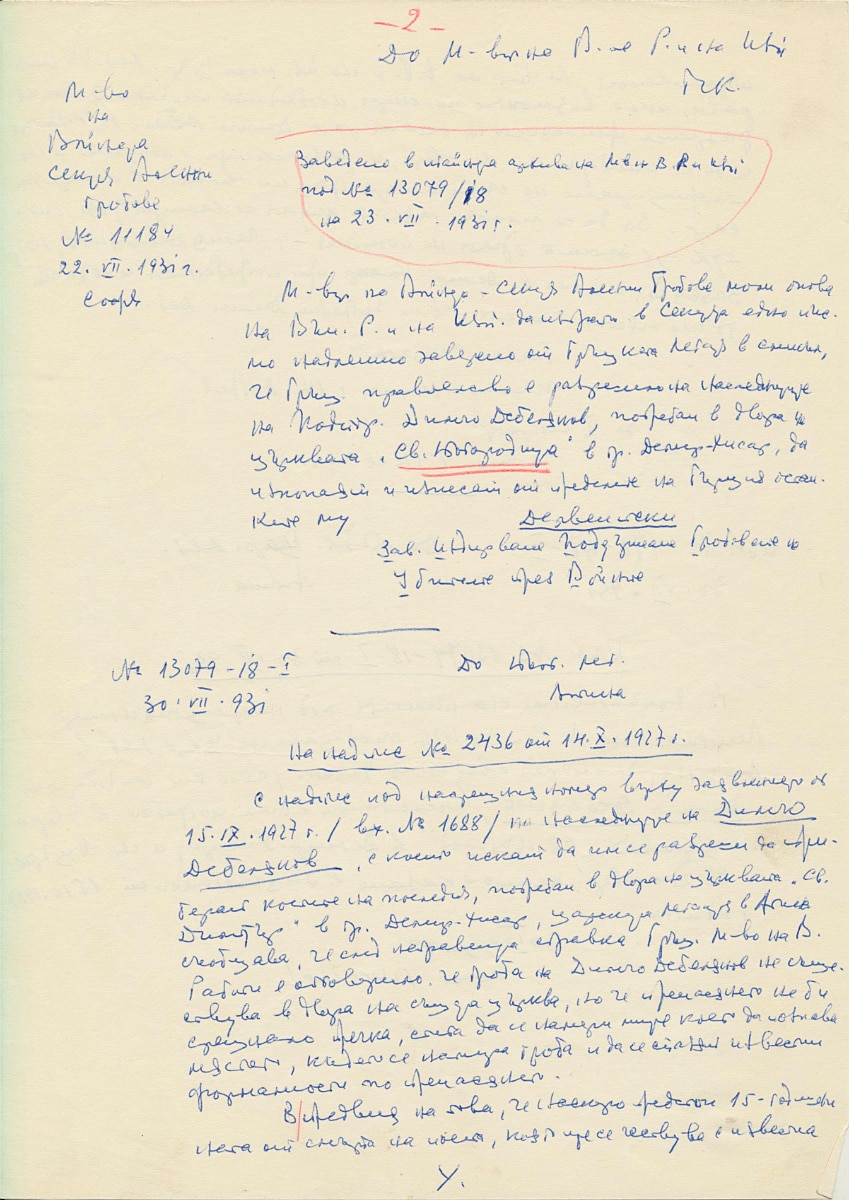 - 2 -
До М-вото на В-те Р. и на Изп.
Т у к.
М-во
на
Войната
Секция Военни
гробове
№ 11184
22. VII. 1931 г.
София
Заведено в тайната архива на М-во В. Р. и Изп
под № 13079/18
на 23. VII. 1931 г.
М-во на Войната - Секция Военни Гробове моли
на Вън. Р. и на Изп. да изпрати в Секцията едно пис-
мо надлежно заведено от Гръцката легация в смисъл,
че Гръц. правителство е разрешило на наследниците
на Подпор. Димчо Дебелянов, погребан в двора на
църквата "Св. Богородица" в гр. Демир-Хисар, да
изкопаят и изнесат от пределите на Гърция остан-
ките му
Дервентски
Зав. Издирване Поддържане Гробовете на
Убитите през Войните
№ 13079-18-I
30. VII. 931
До Бълг. лег.
Атина
На надпис № 2436 от 14. X. 1927 г.
С надпис под насрещния номер върху заявлението от
15. IX. 1927 г. / вх. № 1688 / на наследниците на Димчо
Дебелянов, с което искат да им се разреши да при-
берат костите на последния, погребан в двора на църквата "Св.
Димитър" в гр. Демир-Хисар, царската легация в Атина
съобщава, че след направена справка Гръц. М-во на В.
Работи е отговорило, че гроба на Димчо Дебелянов не съще-
ствува в двора на същата църква, но че пренасянето не би
срещнало пречка, стига да се намери лице което да познава
мястото, където се намира гроба и да се спазят известни
формалности по пренасянето.
Въпредвид на това, че наскоро предстои 15-годишни
ната от смъртта на поета, която ще се чествува с известна
У.